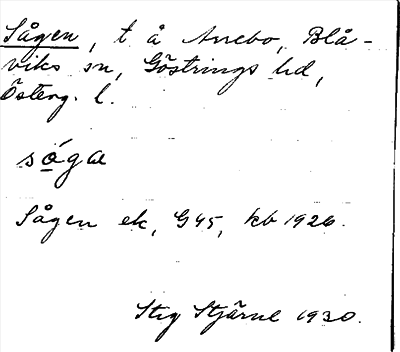 Sågen, t å Arrebo, Blå-
viks sn, Göstrings hd,
Österg. l.
sóga
Sågen ek, G45, kb 1926.
Stig Stjärne 1930.